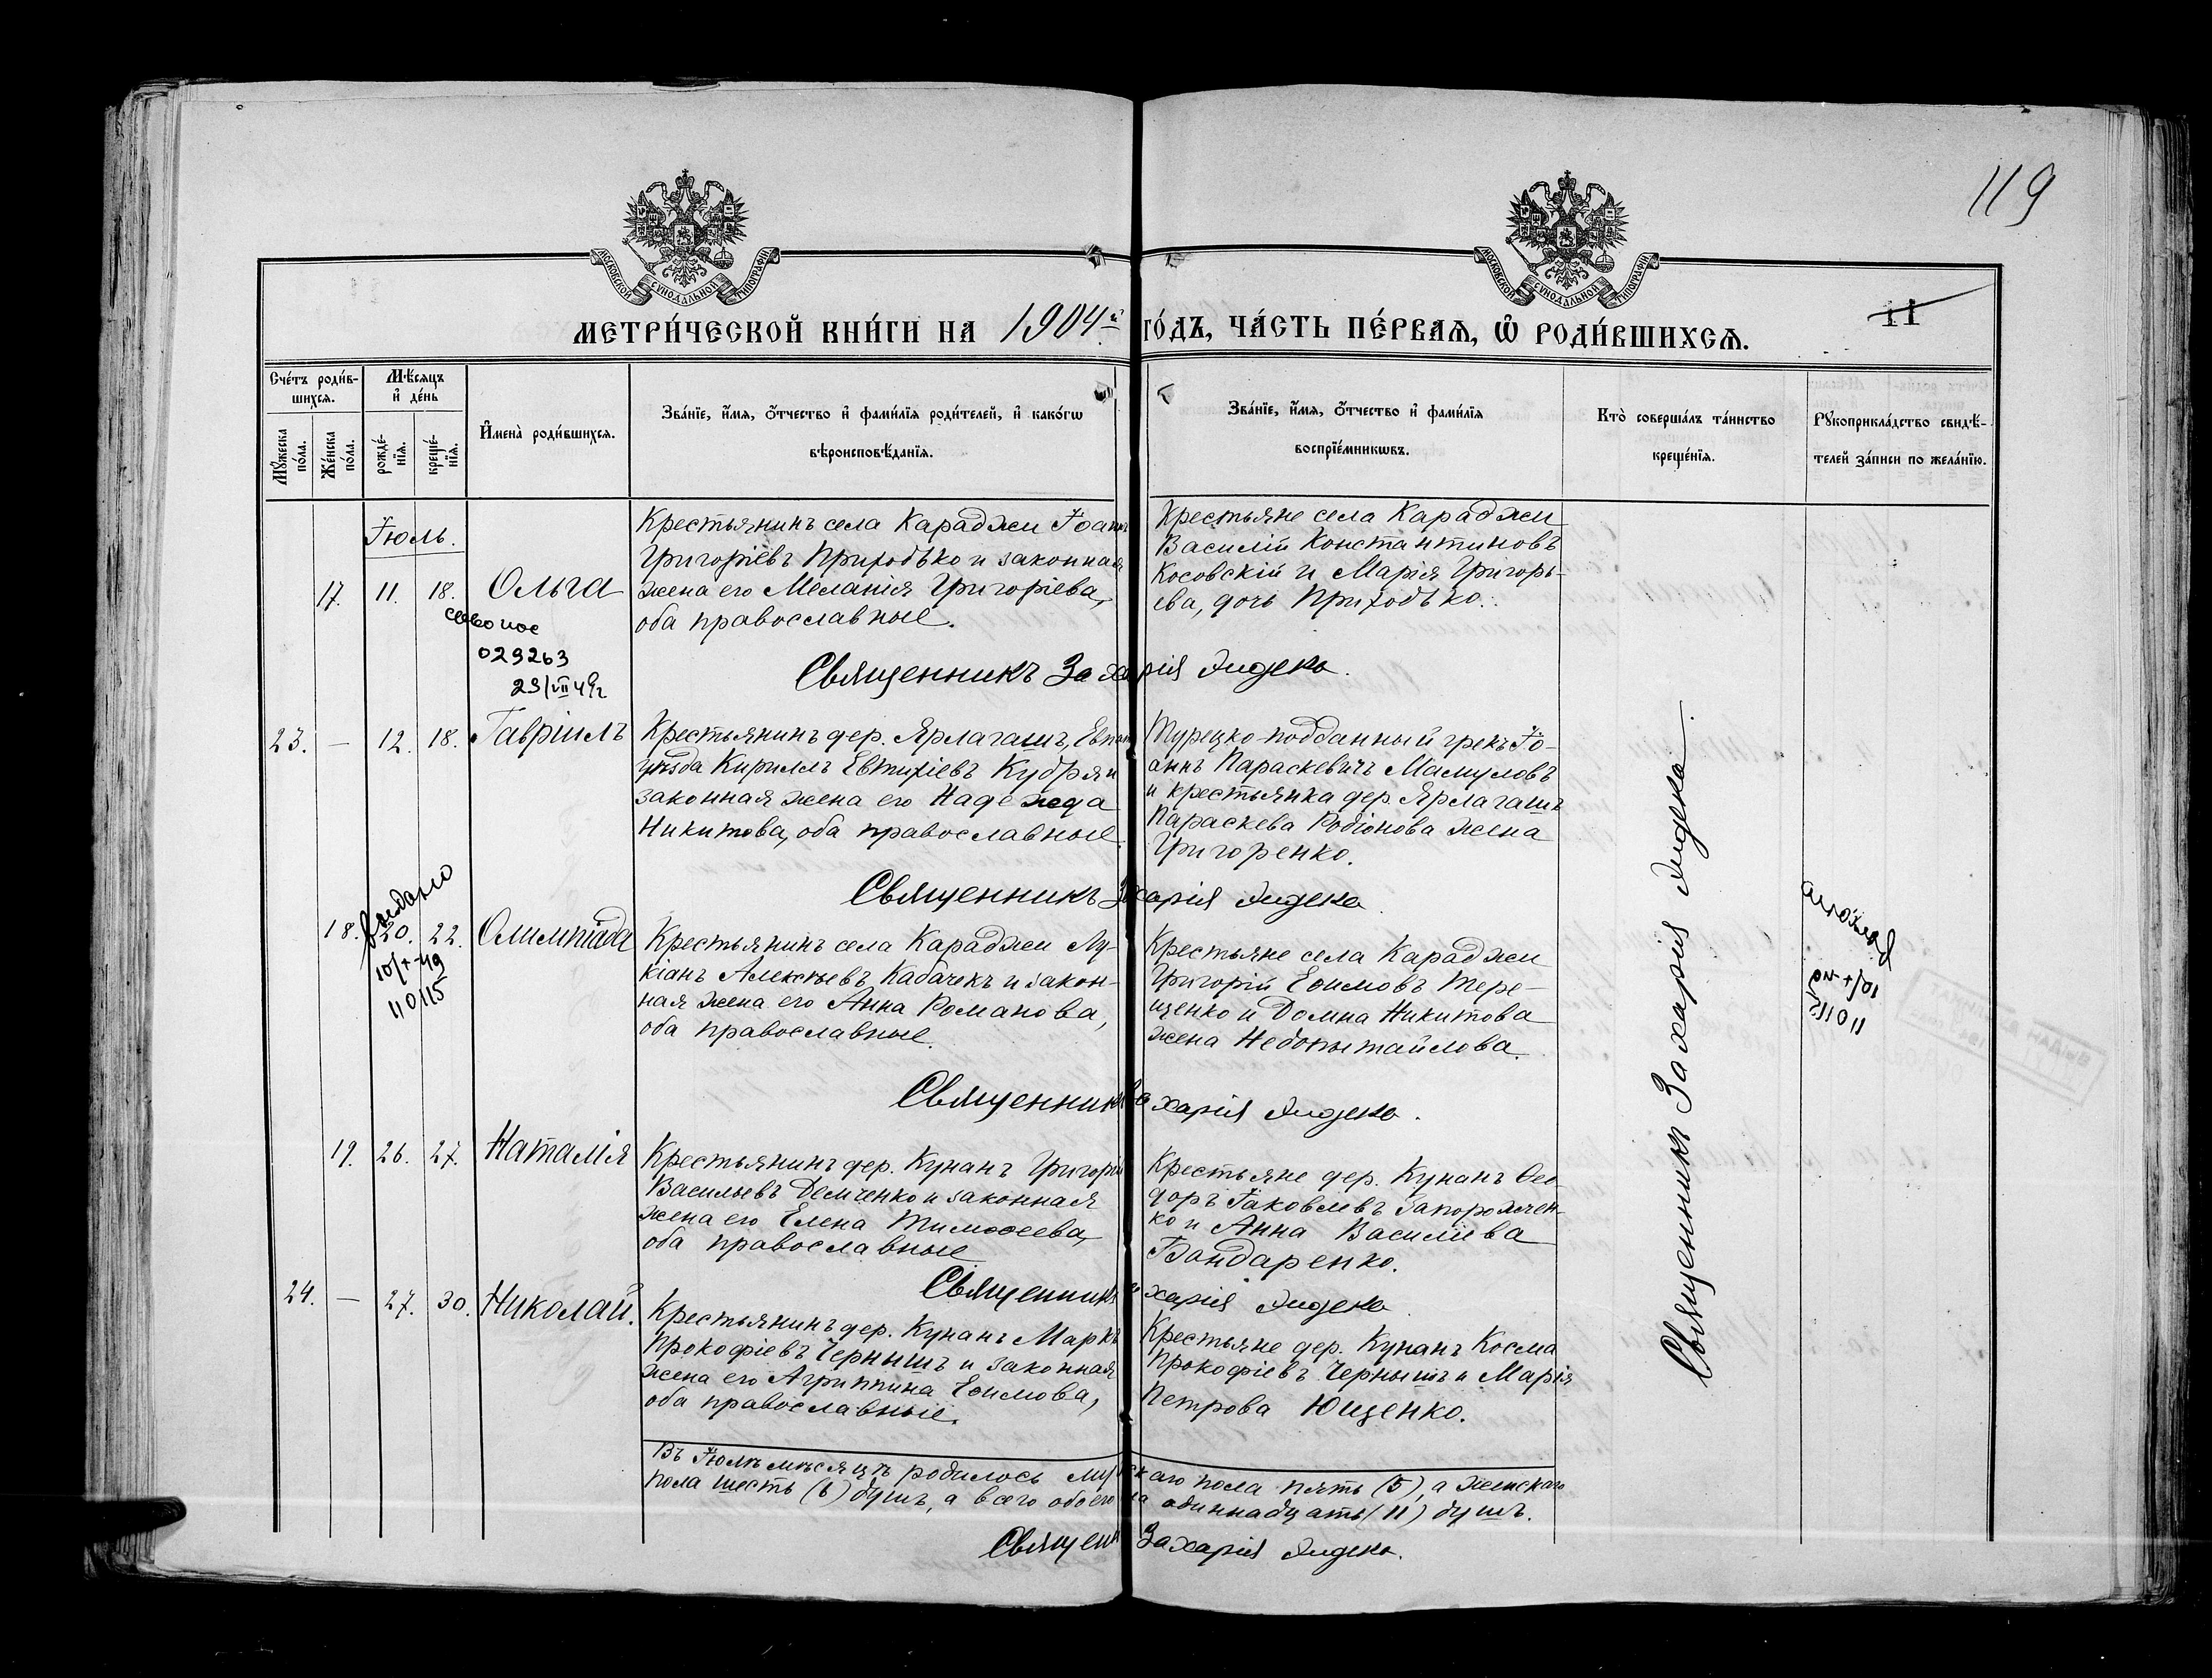 119
МОСКОВСКОЙ СУНОДАЛЬНОЙ ТИПОГРАФІИ
МОСКОВСКОЙ СУНОДАЛЬНОЙ ТИПОГРАФІИ
МЕТРИ́ЧЕСКОЙ КНИ́ГИ НА 1904й ГО́ДЪ, ЧА́СТЬ ПЕ́РВАѦ, Ѽ РОДИ́ВШИХСѦ.
11
Сче́тъ роди́в-
шихсѧ.
Мꙋ́жеска по́ла.
Же́нска по́ла.
Мѣ́сѧцъ
и҆ де́нь
рожде́-
нїѧ.
креще́-
нїѧ.
И҆мена̀ роди́вшихсѧ.
Зва́нїе, и҆́мѧ, ѻ҆́тчество и҆ фами́лїѧ роди́телей, и҆ како́гѡ
вѣроисповѣ́данїѧ.
Зва́нїе, и҆́мѧ, ѻ҆́тчество и҆ фами́лїѧ
воспрїе́мникѡвъ.
Кто̀ соверша́лъ та́инство
креще́нїѧ.
Рꙋкоприкла́дство свидѣ́-
телей за́писи по жела́нїю.
Іюль.
17. 11. 18. Ольга
Крестьянинъ села Караджи Іоаннъ
Григоріевъ Приходько и законная
жена его Меланія Григоріева,
оба православные.
Крестьяне села Караджи
Василій Константиновъ
Косовскій и Марія Григорь-
ева, дочь Приходько.
029263
23/VII 49г
Священникъ Захарія
23. — 12. 18. Гавріилъ
Крестьянинъ дер. Ярлагашъ, Евпат
уѣзда Кириллъ Евтихіевъ Кудря и
законная жена его Надежда
Никитова, оба православные.
Турецко-подданный грекъ Іо-
аннъ Параскевичъ Мамуловъ
и крестьянка дер. Ярлагашъ
Параскева Родіонова жена
Григоренко.
Священникъ Захарія
18. 20. 22. Олимпіада
Выдано
10/X-49
110115
Крестьянинъ села Караджи Лу-
кіанъ Алексѣевъ Кабачекъ и закон-
ная жена его Анна Романова,
оба православные.
Крестьяне села Караджи
Григорій Ефимовъ Тере-
щенко и Домна Никитова
жена Недопытайлова.
110115
Священникъ Захарія
19. 26. 27. Наталія
Крестьянинъ дер. Кунанъ Григорій
Васильевъ Демченко и законная
жена его Елена Тимоѳеева,
оба православные
Крестьяне дер. Кунанъ Ѳео
доръ Іаковлевъ Запорожчен-
ко и Анна Василіева
Бондаренко.
Священникъ Захарія
24. — 27. 30. Николай.
Крестьянинъ дер. Кунанъ Маркъ
Прокофіевъ Чернышъ и законная
жена его Агриппина Ефимова,
оба православные.
Крестьяне дер. Кунанъ Косма
Прокофіевъ Чернышъ и Марія
Петрова Ющенко.
Въ Іюлѣ мѣсяцѣ родилось мужскаго пола пять (5), а женскаго
пола шесть (6) душъ, а всего обоего пола одиннадцать (11) душъ.
Священ Захарія
Священникъ Захарія